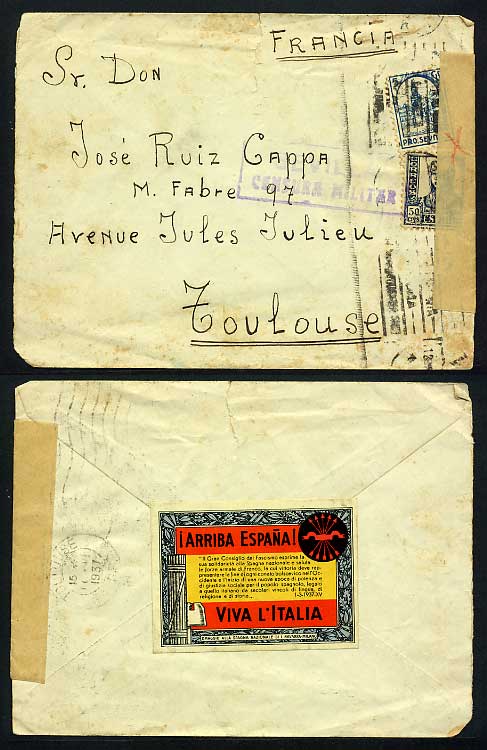 FRANCIA
Sr. Don
José Ruiz Cappa
M. Fabre 97
Avenue Jules Julieu
Toulouse
CENSURA MILITAR
PRO SEVI
50
CTS
1937
¡ARRIBA ESPAÑA!
"Il Gran Consiglio del Fascismo esprime la
sua solidarietà alla Spagna nazionale e saluta
le forze armate di Franco, la cui vittoria deve rap-
presentare la fine di ogni conato bolscevico nell'Oc-
cidente e l'inizio di una nuova epoca di potenza e
di giustizia sociale per il popolo spagnolo, legato
a quello italiano da secolari vincoli di lingua, di
religione e di storia„.
1-3-1937-XV
VIVA L'ITALIA
OMAGGIO ALLA SPAGNA NAZIONALE DI